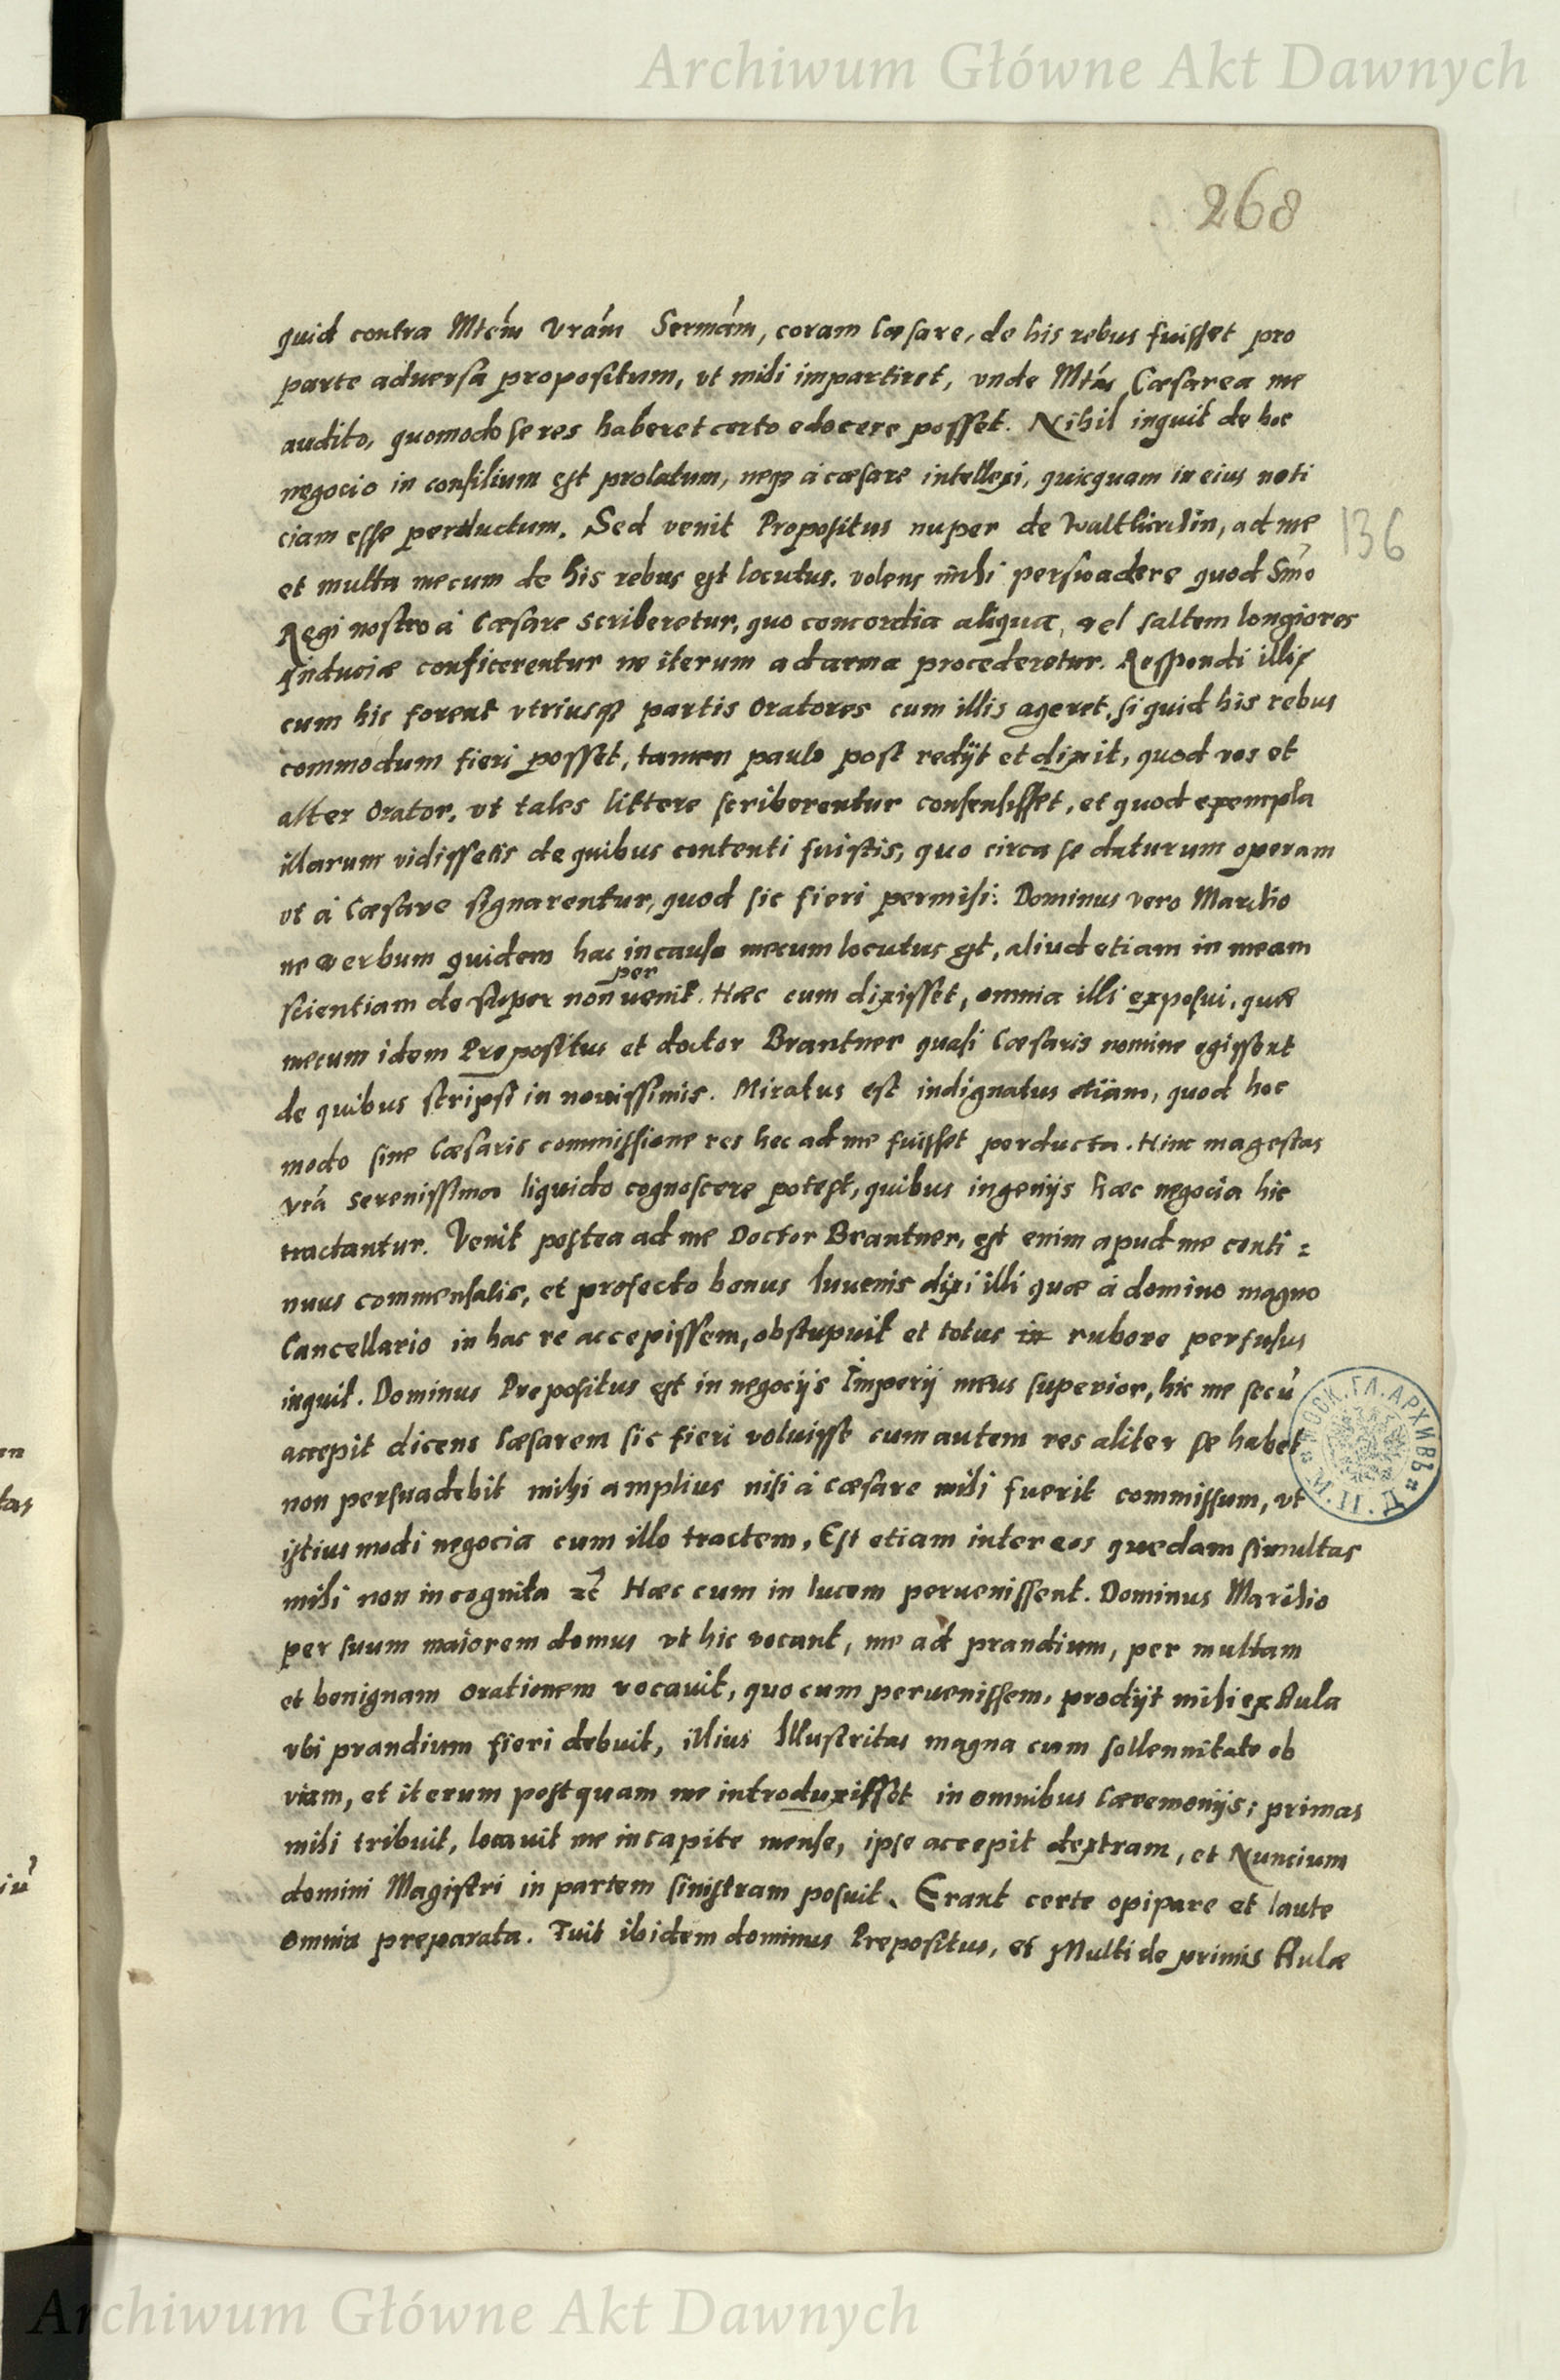 Archiwum Główne Akt Dawnych
268
quid contra Mtem Vram Sermam, coram Cæsare, de his rebus fuisset pro
parte aduersa propositum, vt mihi impartiret, vnde Mtas Cæsarea me
audito, quomodo se res haberet certo edocere posset. Nihil inquit de hoc
negocio in consilium est prolatum, neqȝ à cæsare intellexi, quicquam in eius noti
ciam esse perductum. Sed venit Propositus nuper de Waltkirchin, ad me
136
et multa mecum de his rebus est locutus. volens mihi persuadere quod Smo
Regi nostro à Cæsare scriberetur, quo concordia aliqua, vel saltem longiores
Induciæ conficerentur ne iterum ad arma procederetur. Respondi illi,
cum hic forent vtriusqȝ partis Oratores cum illis ageret, si quid his rebus
commodum fieri posset, tamen paulo post redijt et dixit, quod vos et
alter Orator, vt tales littere scriberentur consensisset, et quod exempla
illarum vidissetis de quibus contenti fuistis, quo circa se daturum operam
vt à Cæsare signarentur, quod sic fieri permisi: Dominus vero Marchio
ne verbum quidem hac in causa mecum locutus est, aliud etiam in meam
scientiam de super non peruenit. Hæc cum dixisset, omnia illi exposui, quæ
mecum idem Prepositus et doctor Brantner quasi Cæsaris nomine egissent
de quibus scripsi in nouissimis. Miratus est indignatus etiam, quod hoc
modo sine Cæsaris commissione res hec ad me fuisset perducta. Hinc magestas
vra serenissima liquido cognoscere potest, quibus ingenijs hæc negocia hic
tractantur. Venit postea ad me Doctor Brantner, est enim apud me conti =
nuus commensalis, et profecto bonus Iuuenis dixi illi quæ à domino magno
Cancellario in hac re accepissem, obstupuit et totus in rubore perfusus
inquit. Dominus Prepositus est in negocijs Imperij meus superior, hic me secū
accepit dicens Cæsarem sic fieri voluisse cum autem res aliter se habet
non persuadebit mihi amplius nisi à cæsare mihi fuerit commissum, vt
istius modi negocia cum illo tractem, Est etiam inter eos quedam simultas
mihi non in cognita etc Hæc cum in lucem peruenissent. Dominus Marchio
per suum maiorem domus vt hic vocant, me ad prandium, per multam
et benignam orationem vocauit, quo cum peruenissem, prodijt mihi ex Aula
vbi prandium fieri debuit, illius Illustritas magna cum sollennitate ob
viam, et iterum postquam me introduxisset in omnibus Cæremonijs; primas
mihi tribuit, locauit me in capite mense, ipse accepit dextram, et Nuncium
domini Magistri in partem sinistram posuit. Erant certe opipare et laute
omnia preparata. Fuit ibidem dominus Prepositus, et Multi de primis Aulæ
Archiwum Główne Akt Dawnych